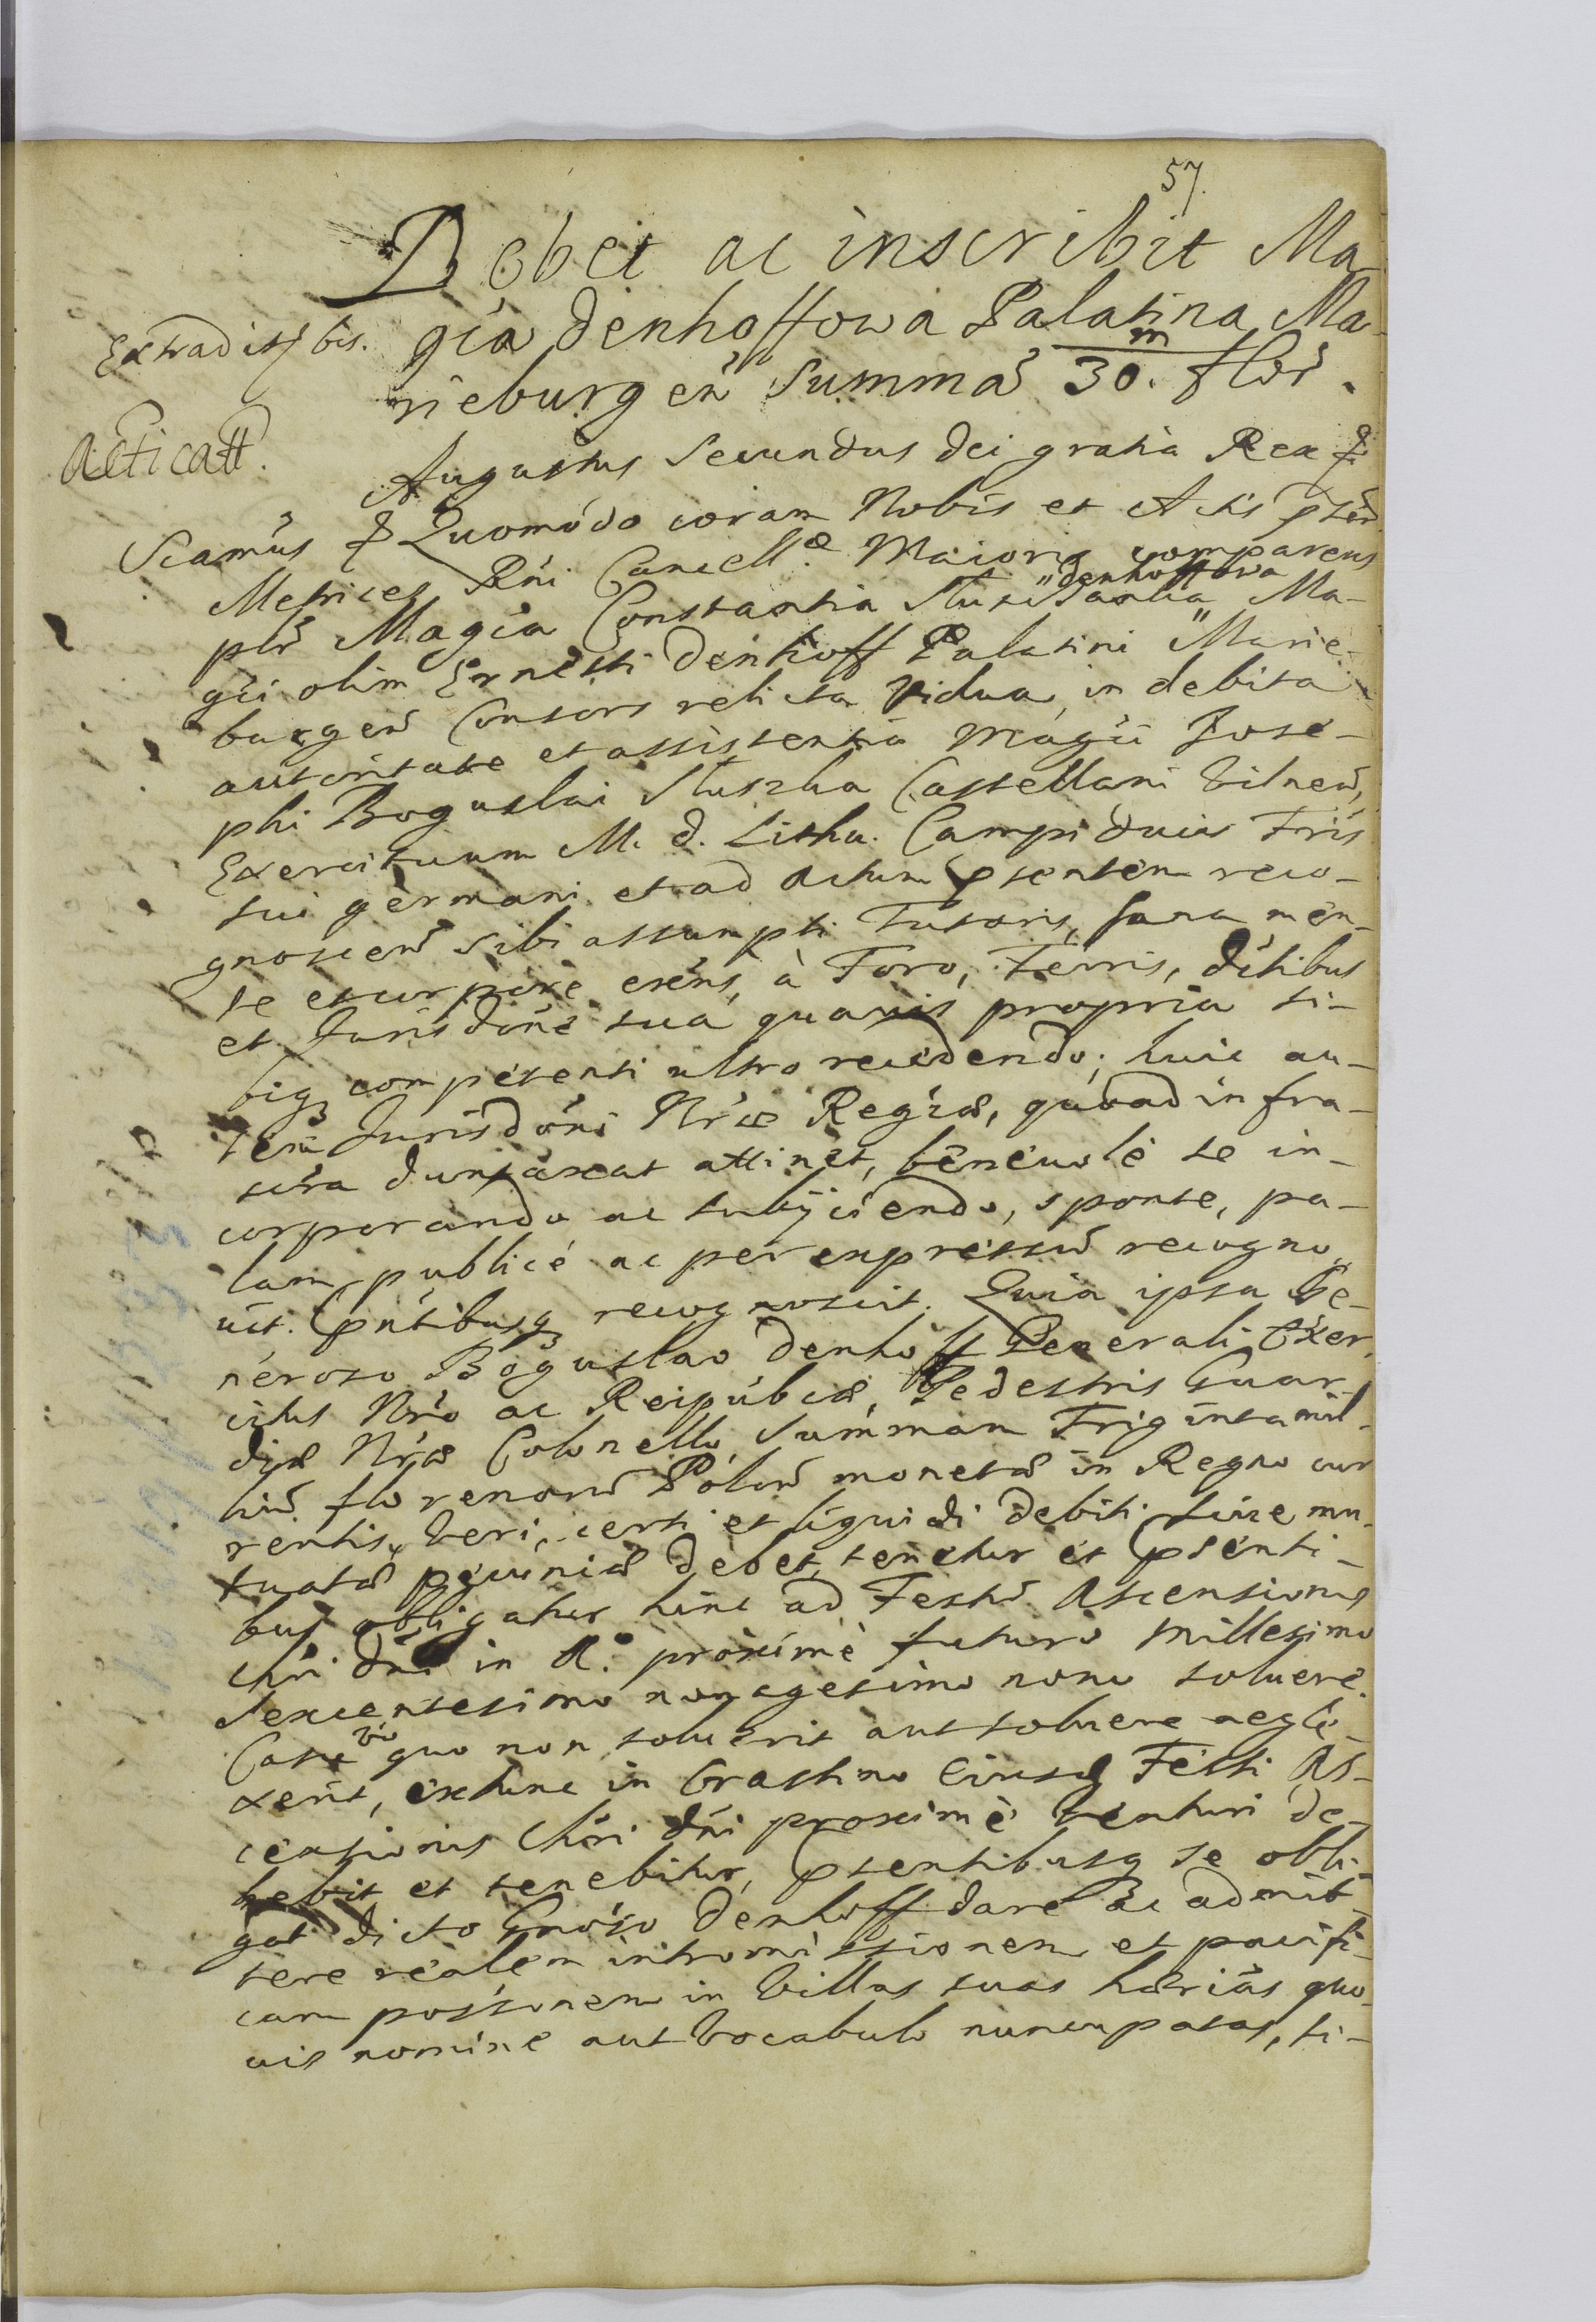 57.
Debet ac inscribit Ma-
gĩca Denhoffowa Palatina Ma-
Extradit bis.
rieburgeñ Summã 30. m flor.
Acticatt.
Augustus Secundus Dei gratia Rex &
Scamus & Quomodo coram Nobis et Actis
Metrices Rñi Cancellae Maioris comparens
plr Magĩca Constantia Denhoffowa Ma-
gci olim Ernesti Denhoff Palatini Marie-
burgeñ Consors relicta vidua, in debita
autoritate et assistentia Magci Jose-
phi Boguslai Sluszka Castellani Vilneñ,
Exercituum M. D. Lithu. Campi Ducis Fris
sui germani et ad Actum psentem reco-
gnosceñ sibi assumpti Tutoris, sana men-
te et corpore exẽns, à Foro, Terris, dctibus
et Jurisdõne sua quavis propria si-
biq competenti ultro recedendo; huic au-
tem Jurisdõni Nrae Regiae, quoad infra-
scta duntaxat attinet, benevolè se in-
corporando ac subijciendo, sponte, pa-
lam publicè ac per expressũ recogno
uit. Pñtibusq recognoscit. Quia ipsa Ge-
neroso Boguslao Denhoff Generali Exer,
citus Nro ac Reipublcae, Pedestris Guar-
diae Nrae Colonello, Summam Triginta mil-
liũ florenorũ Poloñ monetae in Regno cur
rentis, veri, certi et liquidi debiti siue mu-
tuatae pecuniae Debet, tenetur et psenti-
bus obligatur hinc ad Festũ Ascensionis
Chri Dni in A.o proximè futuro Millesimo
Sexcentesimo nonagesimo nono soluere.
Casu vo quo non soluerit aut soluere negle-
xerit, extunc in Crastino Eiusd Festi As-
censionis Chri Dñi proximè venturi de-
bebit et tenebitur, psentibusq se obli-
gat dicto Gnoso Denhoff dare ac admit-
tere realem intromissionem et pacifi-
cam possonem in Villas suas hdrias quo-
uis nomine aut vocabulo nuncupatas, si-